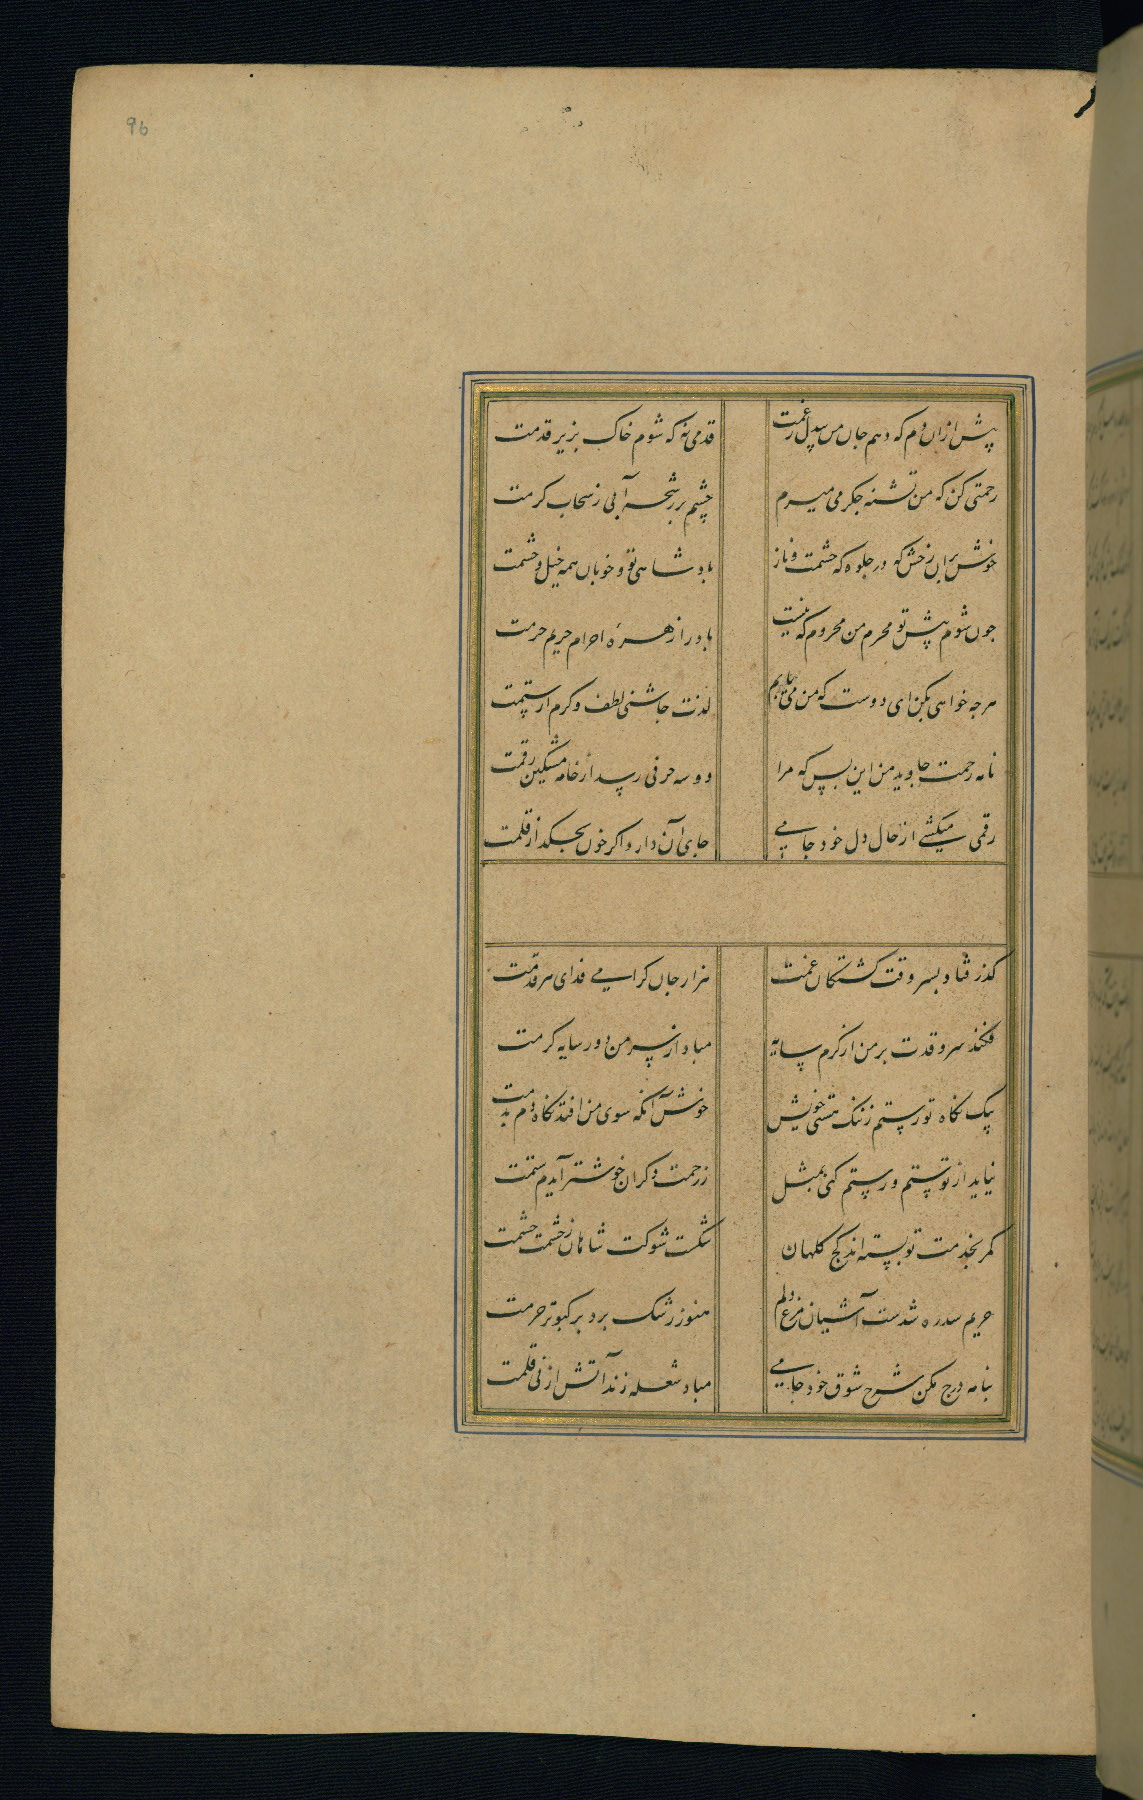 96
پیش ازان دم که دهم جان من بیدل ز غمت قدمی نه که شوم خاک بزیر قدمت
رحمتی کن که من تشنه جکر می میرم چشم بر رشحه آبی ز سحاب کرمت
خوش بران رخش که در جلوه که حشمت و ناز پادشاهی تو و خوبان همه خیل و حشمت
چون شوم پیش تو محرم من محروم که نیست باد را زهره احرام حریم حرمت
هرچه خواهی بکن ای دوست که من می یابم لذت چاشنی لطف و کرم از ستمت
نامه رحمت جاوید من این بس که مرا دو سه حرفی رسد از خامه مشکین رقمت
رقمی میکشی از حال دل خود جامی جای آن دارد اکر خون بچکد از قلمت
کذر فتاد بسر وقت کشتکان غمت هزار جان کرامی فدای هر قدمت
فکند سرو قدت بر من از کرم سایه مباد از سر من دور سایه کرمت
بیک نکاه تو رستم ز ننک هستی خویش خوش آنکه سوی من افتد نکاه دم بدمت
نیاید از تو ستم ور ستم کنی بمثل ز رحمت دکران خوشتر آیدم ستمت
کمر بخدمت تو بسته اند کج کلهان شکست شوکت شاهان ز حشمت حشمت
حریم سدره شدست آشیان مرغ دلم هنوز رشک برد بر کبوتر حرمت
بنامه درج مکن شرح شوق خود جامی مباد شعله زند آتش از نی قلمت